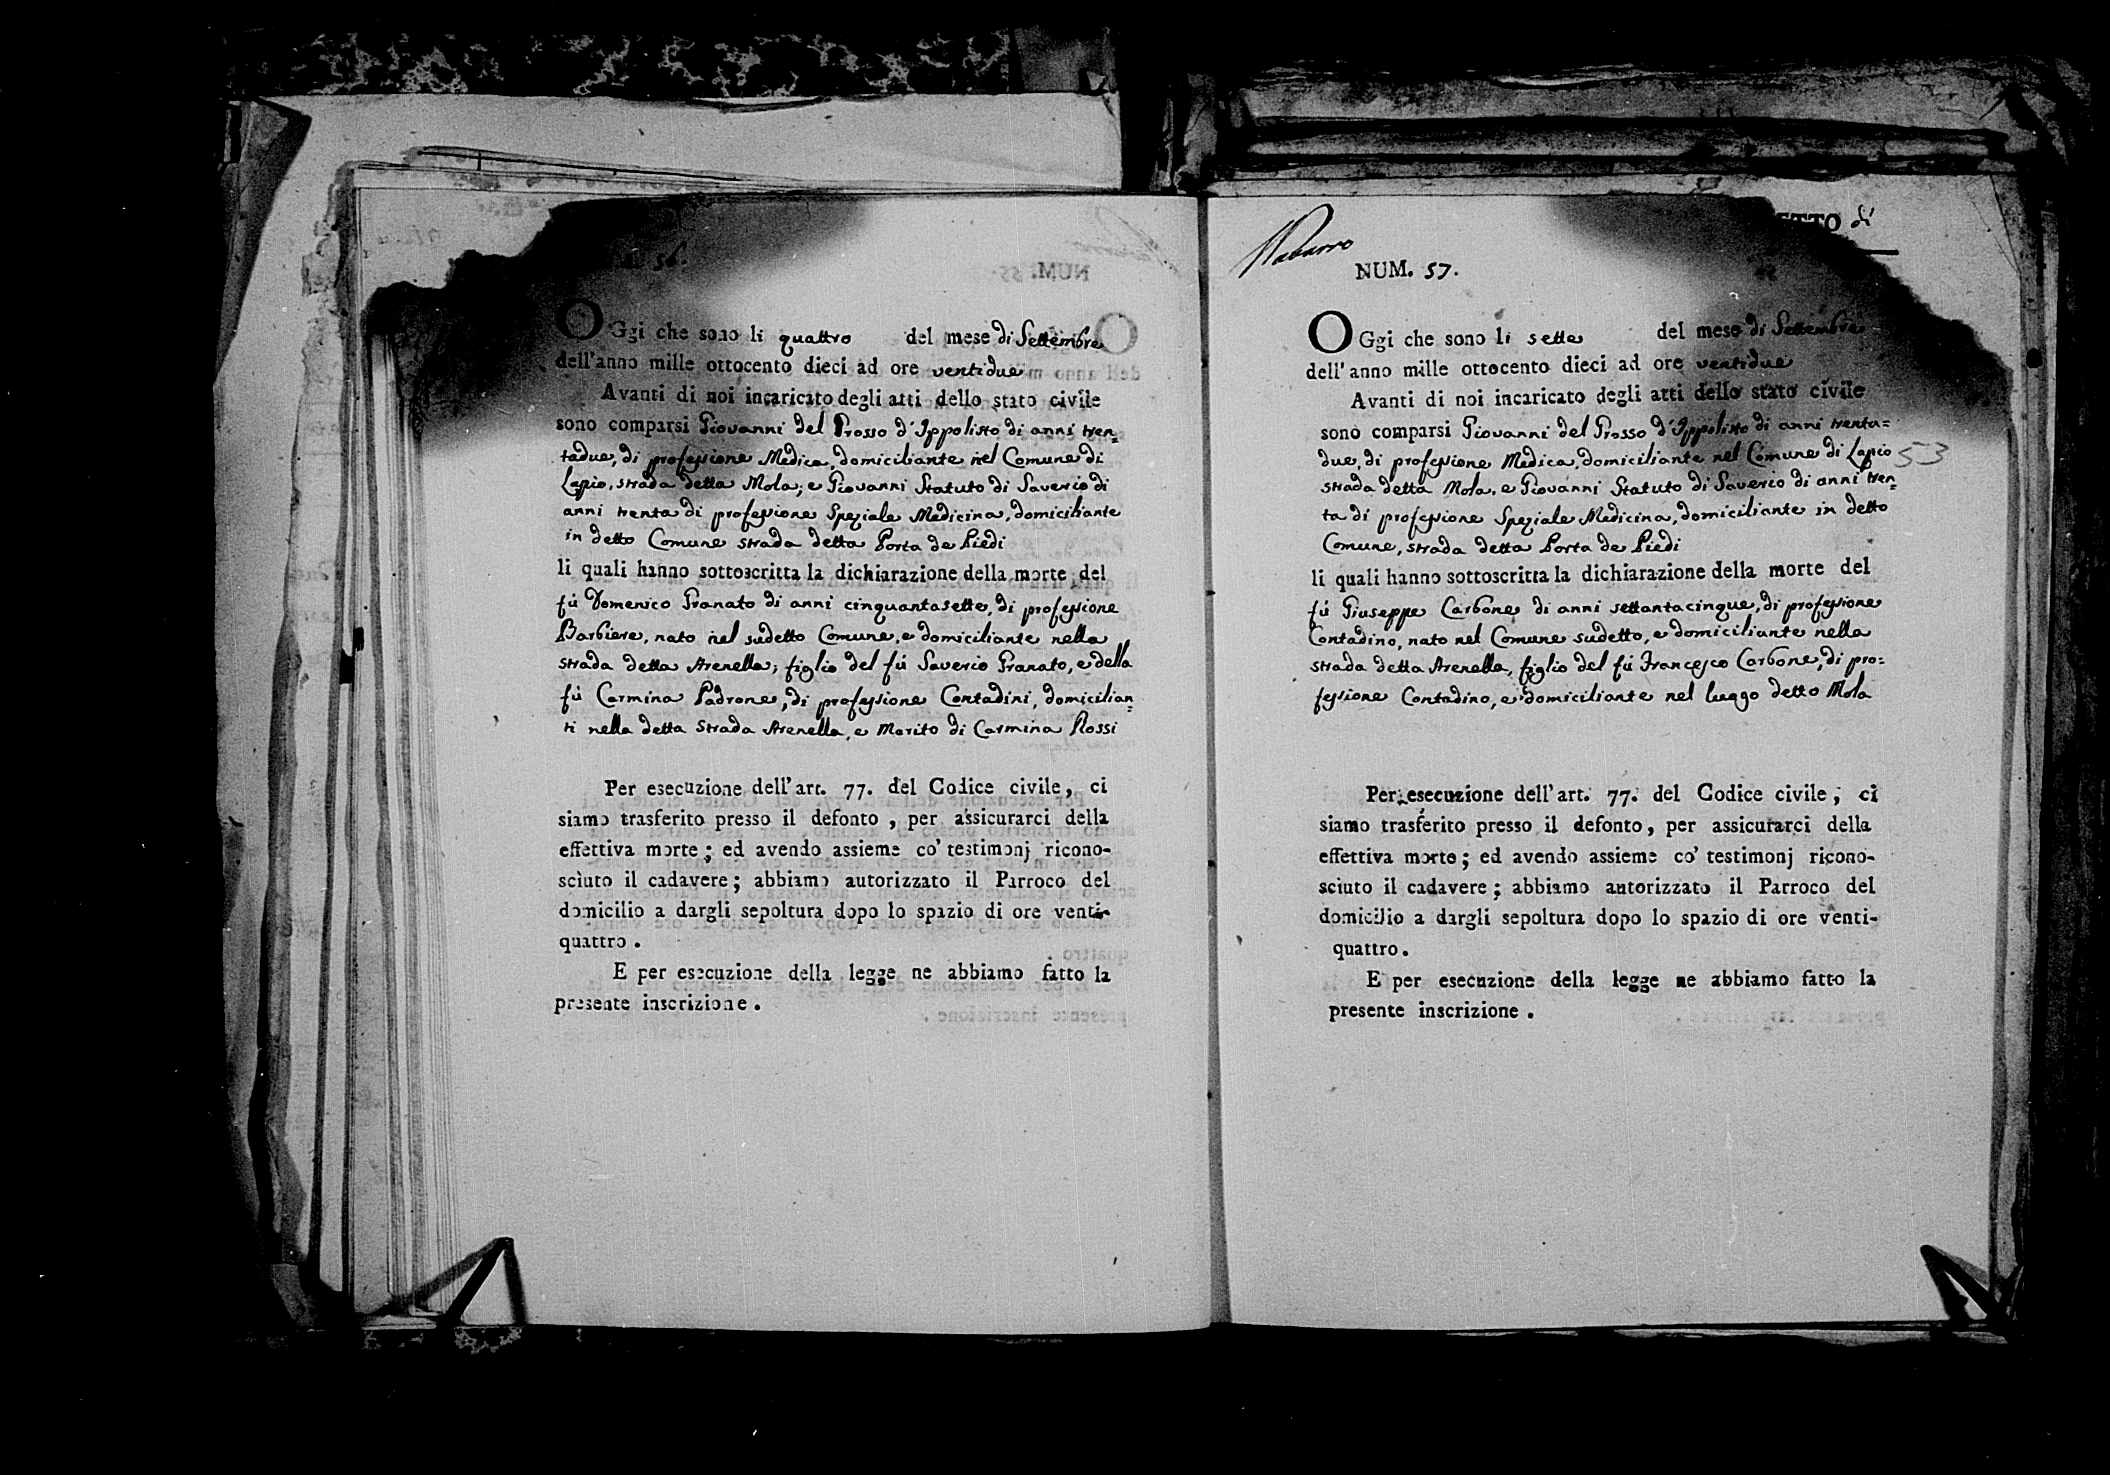 56.
OGgi che sono li quattro del mese di Settembre
dell'anno mille ottocento dieci ad ore ventidue
Avanti di noi incaricato degli atti dello stato civile
sono comparsi Giovanni del Grosso d'Ippolisto di anni tren=
tadue, di professione Medica, domiciliante nel Comune di
Lapio, strada detta Mola; e Giovanni Statuto di Saverio di
anni trenta di professione Speziale Medicina, domiciliante
in detto Comune strada detta Porta de Piedi
li quali hanno sottoscritta la dichiarazione della morte del
fù Domenico Granato di anni cinquantasette, di professione
Barbiere, nato nel sudetto Comune, e domiciliante nella
strada detta Arenella; figlio del fù Saverio Granato, e della
fù Carmina Padrone, di professione Contadini, domicilian=
ti nella detta Strada Arenella, e Marito di Carmina Rossi
Per esecuzione dell'art. 77. del Codice civile, ci
siamo trasferito presso il defonto, per assicurarci della
effettiva morte; ed avendo assieme co' testimonj ricono-
sciuto il cadavere; abbiamo autorizzato il Parroco del
domicilio a dargli sepoltura dopo lo spazio di ore venti-
quattro.
E per esecuzione della legge ne abbiamo fatto la
presente inscrizione.
ETTO di
Nabarro
NUM. 57.
OGgi che sono li sette del mese di Settembre
dell'anno mille ottocento dieci ad ore ventidue
Avanti di noi incaricato degli atti dello stato civile
sono comparsi Giovanni del Grosso d'Ippolisto di anni trenta=
due, di professione Medica, domiciliante nel Comune di Lapio
53
strada detta Mola, e Giovanni Statuto di Saverio di anni tren=
ta di professione Speziale Medicina, domiciliante in detto
Comune, strada detta Porta de Piedi
li quali hanno sottoscritta la dichiarazione della morte del
fù Giuseppe Carbone di anni settantacinque, di professione
Contadino, nato nel Comune sudetto, e domiciliante nella
strada detta Arenella, figlio del fù Francesco Carbone, di pro=
fessione Contadino, e domiciliante nel luogo detto Mola
Per esecuzione dell'art. 77. del Codice civile, ci
siamo trasferito presso il defonto, per assicurarci della
effettiva morte; ed avendo assieme co' testimonj ricono-
sciuto il cadavere; abbiamo autorizzato il Parroco del
domicilio a dargli sepoltura dopo lo spazio di ore venti-
quattro.
E per esecuzione della legge ne abbiamo fatto la
presente inscrizione.